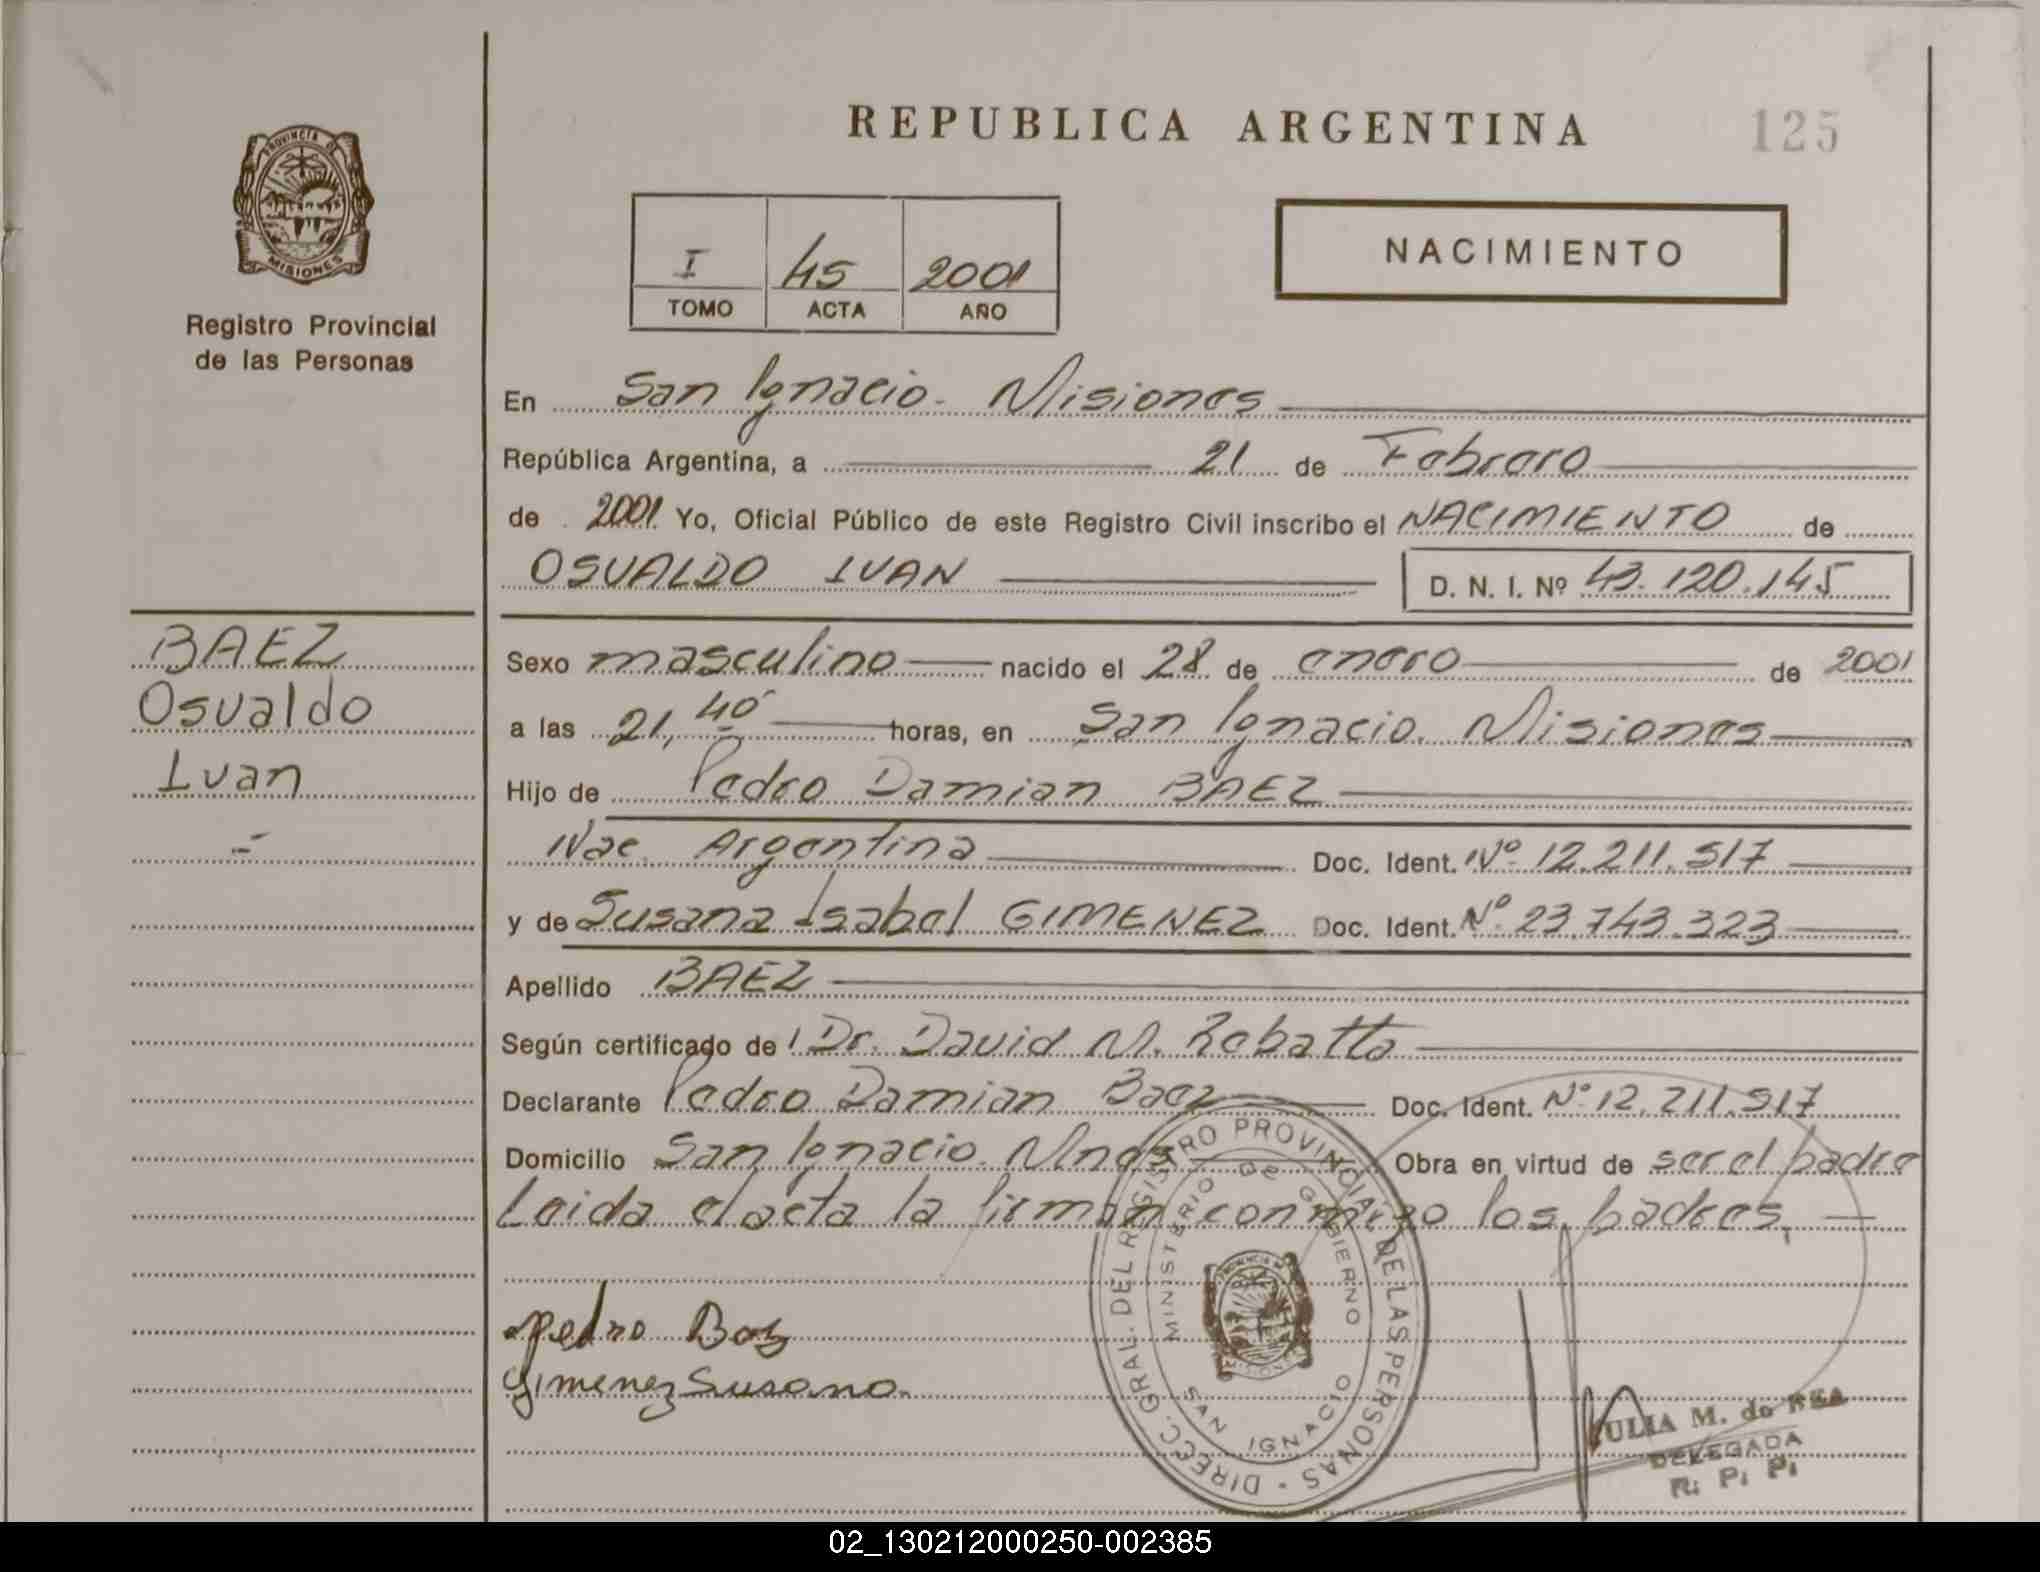 REPUBLICA ARGENTINA
125
PROVINCIA DE
MISIONES
Registro Provincial
de las Personas
I 45 2001
TOMO ACTA AÑO
NACIMIENTO
En San Ignacio. Misiones
República Argentina, a 21 de Febrero
de 2001 Yo, Oficial Público de este Registro Civil inscribo el NACIMIENTO de
OSVALDO IVAN D. N. I. Nº 43.120.145
BAEZ
Osvaldo
Ivan
Sexo masculino nacido el 28 de enero de 2001
a las 21,40 horas, en San Ignacio. Misiones
Hijo de Pedro Damian BAEZ
Nac. Argentina Doc. Ident. Nº 12.211.517
y de Susana Isabel GIMENEZ Doc. Ident. Nº 23.743.323
Apellido BAEZ
Según certificado de Dr. David M. Rebatta
Declarante Pedro Damian Baez Doc. Ident. Nº 12.211.517
Domicilio San Ignacio. Mnes Obra en virtud de ser el padre
Leida el acta la firman conmigo los padres,
Pedro Baz
Gimenez Susana.
DIRECC. GRAL. DEL REGISTRO PROVINCIAL DE LAS PERSONAS
MINISTERIO DE GOBIERNO
SAN IGNACIO
JULIA M. de
DELEGADA
R. P. P.
02_130212000250-002385